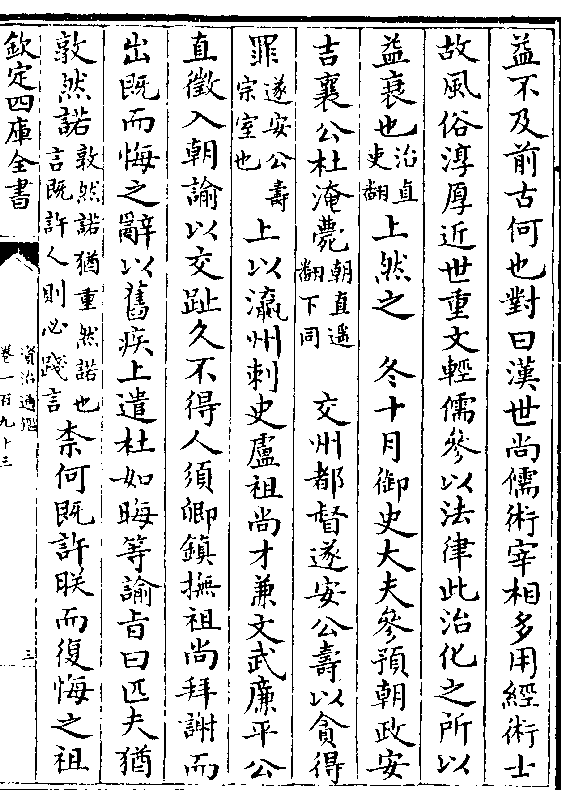 益不及前古何也對曰漢世尚儒術宰相多用經術士
故風俗淳厚近世重文輕儒參以法律此治化之所以
益衰也治直吏翻上然之 冬十月御史大夫參預朝政安
吉襄公杜淹薨朝直遥翻下同 交州都督遂安公壽以貪得
罪遂安公壽宗室也 上以瀛州刺史盧祖尚才兼文武廉平公
直徵入朝諭以交趾久不得人須卿鎮撫祖尚拜謝而
出既而悔之辭以舊疾上遣杜如晦等諭旨曰匹夫猶
敦然諾敦然諾猶重然諾也言既許人則必踐言柰何既許朕而復悔之祖
欽定四庫全書
資治通鑑
卷一百九十三
三